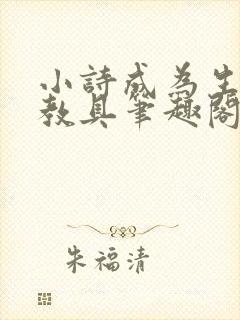 小詩成為生
教具筆趣閣
朱福清